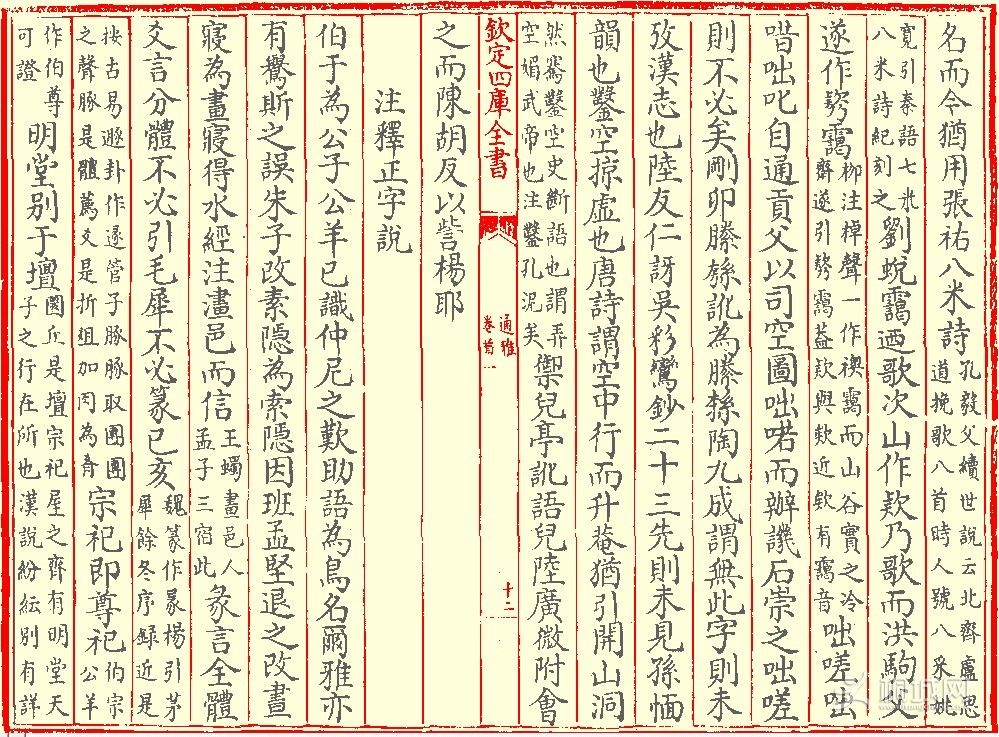 名而今猶用張祐八米詩孔毅父續世說云北齊盧思道挽歌八首時人號八采姚
寛引秦語七米八米詩紀刻之劉蛻靄迺歌次山作欵乃歌而洪駒父
遂作靄柳注棹聲一作禊靄而山谷實之冷齋遂引靄益欵與欸近欸有靄音咄嗟咄
唶咄叱自通貢父以司空圖咄喏而辦譏石崇之咄嗟
則不必矣剛卯訛為陶九成謂無此字則未
攷漢志也陸友仁訝吳彩鸞鈔二十三先則未見孫愐
韻也鑿空掠虛也唐詩謂空中行而升菴猶引開山洞
然騫鑿空史斷語也謂弄空媚武帝也注鑿孔泥矣禦兒亭訛語兒陸廣微附會
欽定四庫全書
通雅
卷首一
十二
之而陳胡反以訾楊耶
注釋正字說
伯于為公子公羊已識仲尼之歎助語為鳥名爾雅亦
有鸒斯之誤朱子改素隱為索隱因班孟堅退之改晝
寢為畫寢得水經注澅邑而信王蠋畫邑人孟子三宿此彖言全體
爻言分體不必引毛犀不必篆已亥魏篆作彖楊引茅犀餘冬序録近是
按古易遯卦作遂管子豚豚取團團之聲豚是體薦爻是折俎加肉為肴宗祀即尊祀伯宗公羊
作伯尊可證明堂别于壇圜丘是壇宗祀屋之齊有明堂天子之行在所也漢説紛紜別有詳